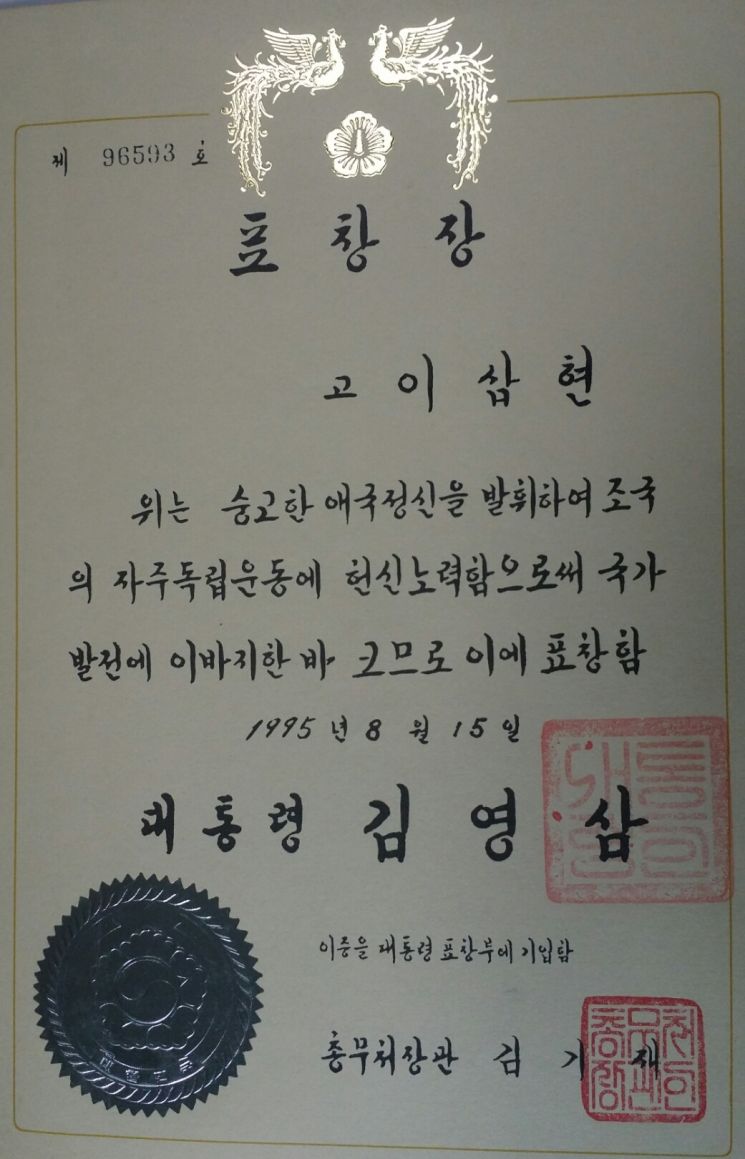 제 96593 호
표창장
고 이삼현
위는 숭고한 애국정신을 발휘하여 조국
의 자주독립운동에 헌신노력함으로써 국가
발전에 이바지한 바 크므로 이에 표창함
1995년 8월 15일
대통령 김영삼
이증을 대통령 표창부에 기입함
총무처장관 김기재